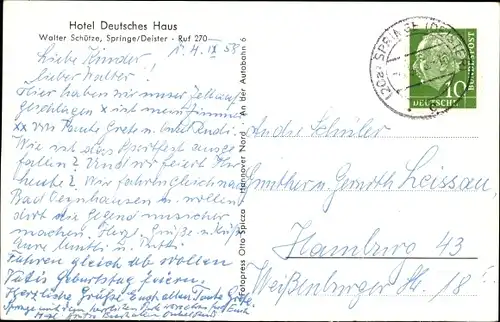 Hotel Deutsches Haus
Walter Schütze, Springe/Deister - Ruf 270
4. IX 58
Liebe Kinder!
Lieber Walter!
Hier haben wir unser Zelt auf
geschlagen x ist mein Zimmer
xx von Tante Grete u. Onkel Rudi.
Wie ist das Sportfest ausge
fallen? Und wir feiert Ihr
heute? Wir fahren gleich nach
Bad Oeynhausen u. wollen
dort die Gegend unsicher
machen. Herzl. Grüße u. Küsse
Eure Mutti u. Vatti
Fahren gleich ab wollen
Vatis Geburtstag feiern.
Herzliche Grüße Euch allen Tante Grete
Fotopress Otto Spicza Hannover Nord · An der Autobahn 6
(20a) SPRINGE (DEISTER)
10
DEUTSCHE
BUNDESPOST
An die Schüler
Günther u. Gerroth Leissau
Hamburg 43
Weißenburger Str. 18